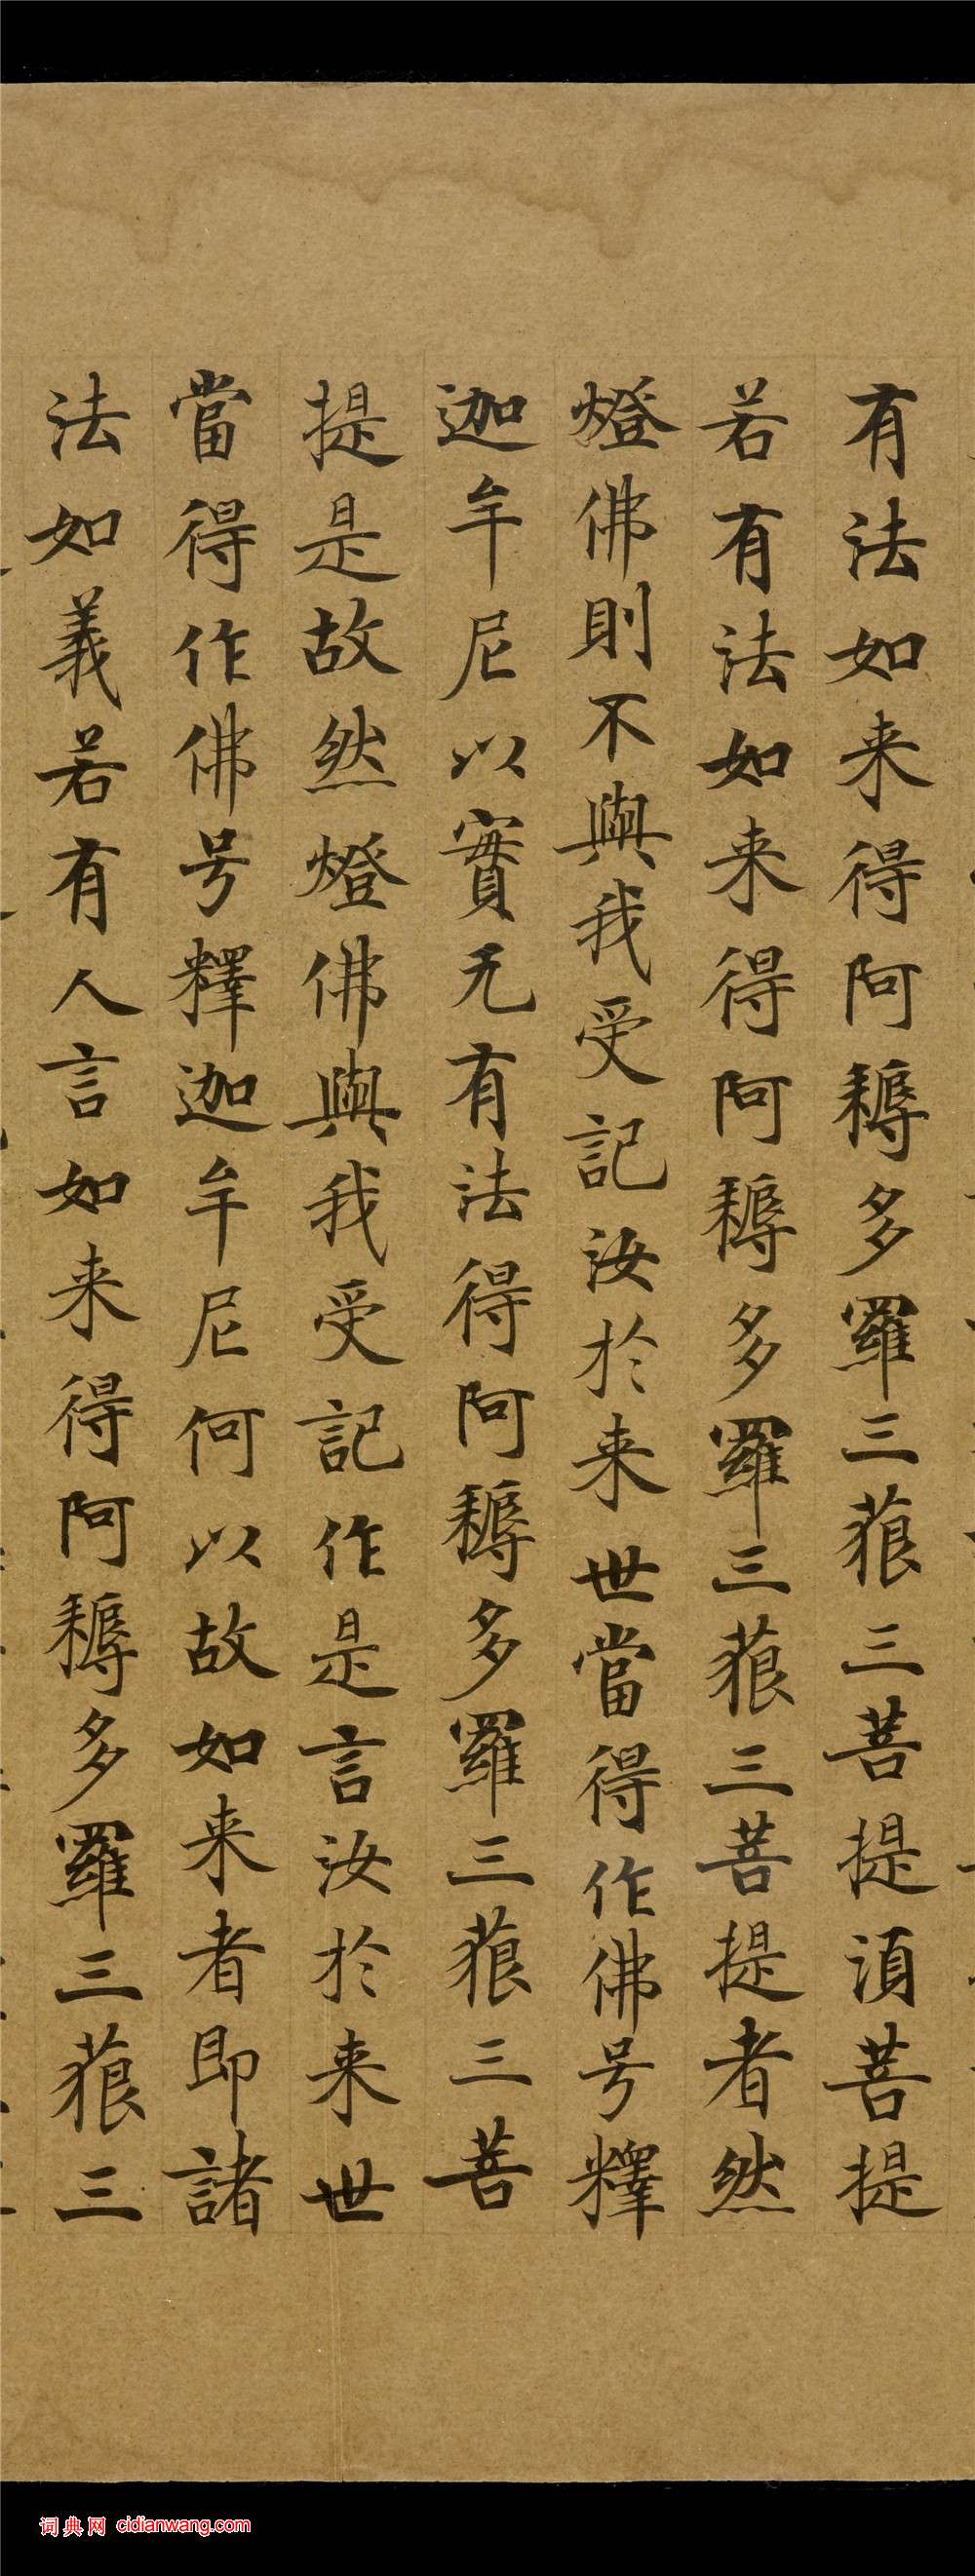 有法如来得阿耨多羅三藐三菩提湏菩提
若有法如来得阿耨多羅三藐三菩提者然
燈佛則不與我受記汝於来世當得作佛号釋
迦牟尼以實无有法得阿耨多羅三藐三菩
提是故然燈佛與我受記作是言汝於来世
當得作佛号釋迦牟尼何以故如来者即諸
法如義若有人言如来得阿耨多羅三藐三
词典网 cidianwang.com